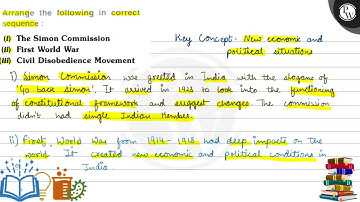 Arrange the following in correct
sequence :
(I) The Simon Commission
(II) First World War
(III) Civil Disobedience Movement
Key Concept: New economic and
political situations
i) Simon Commission was greeted in India with the slogans of
'Go back Simon'. It arrived in 1928 to look into the functioning
of constitutional framework and suggest changes. The commission
didn't had single Indian Member.
ii) First World War from 1914-1918 had deep impacts on the
world. It created new economic and political conditions in
India.